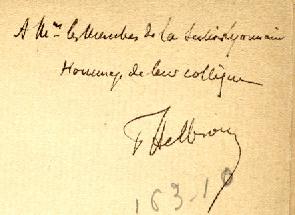 A M.rs les Membres de la Section lyonnaise
Hommage de leur collègue
P Helbronner
163-10